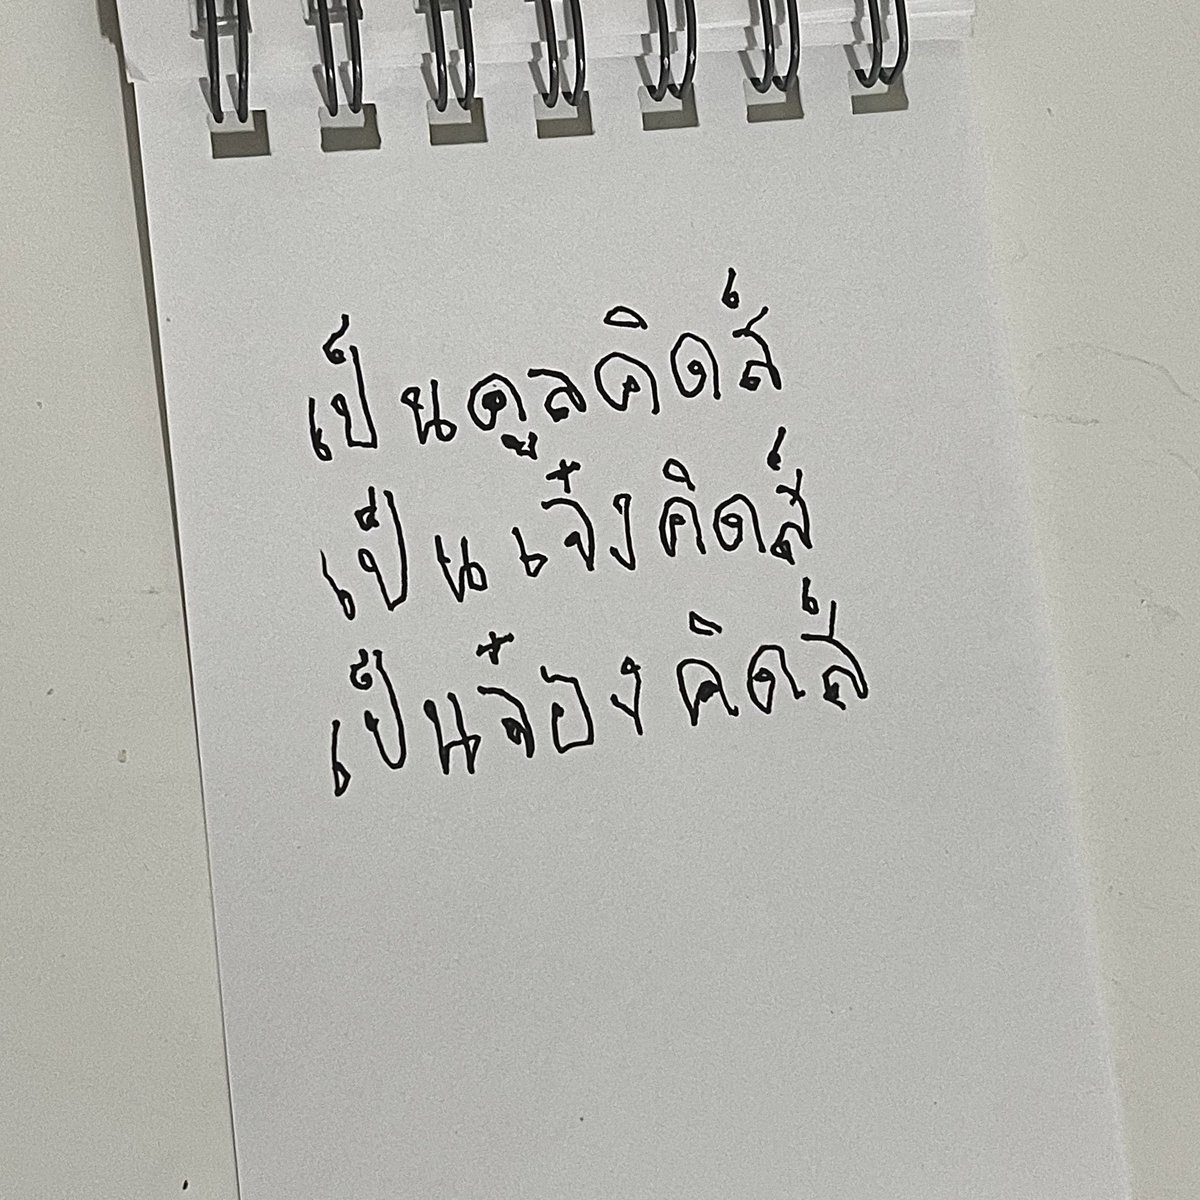 เป็นคูลคิดส์
เป็นเจ๋งคิดส์
เป็นจ๋องคิดส์